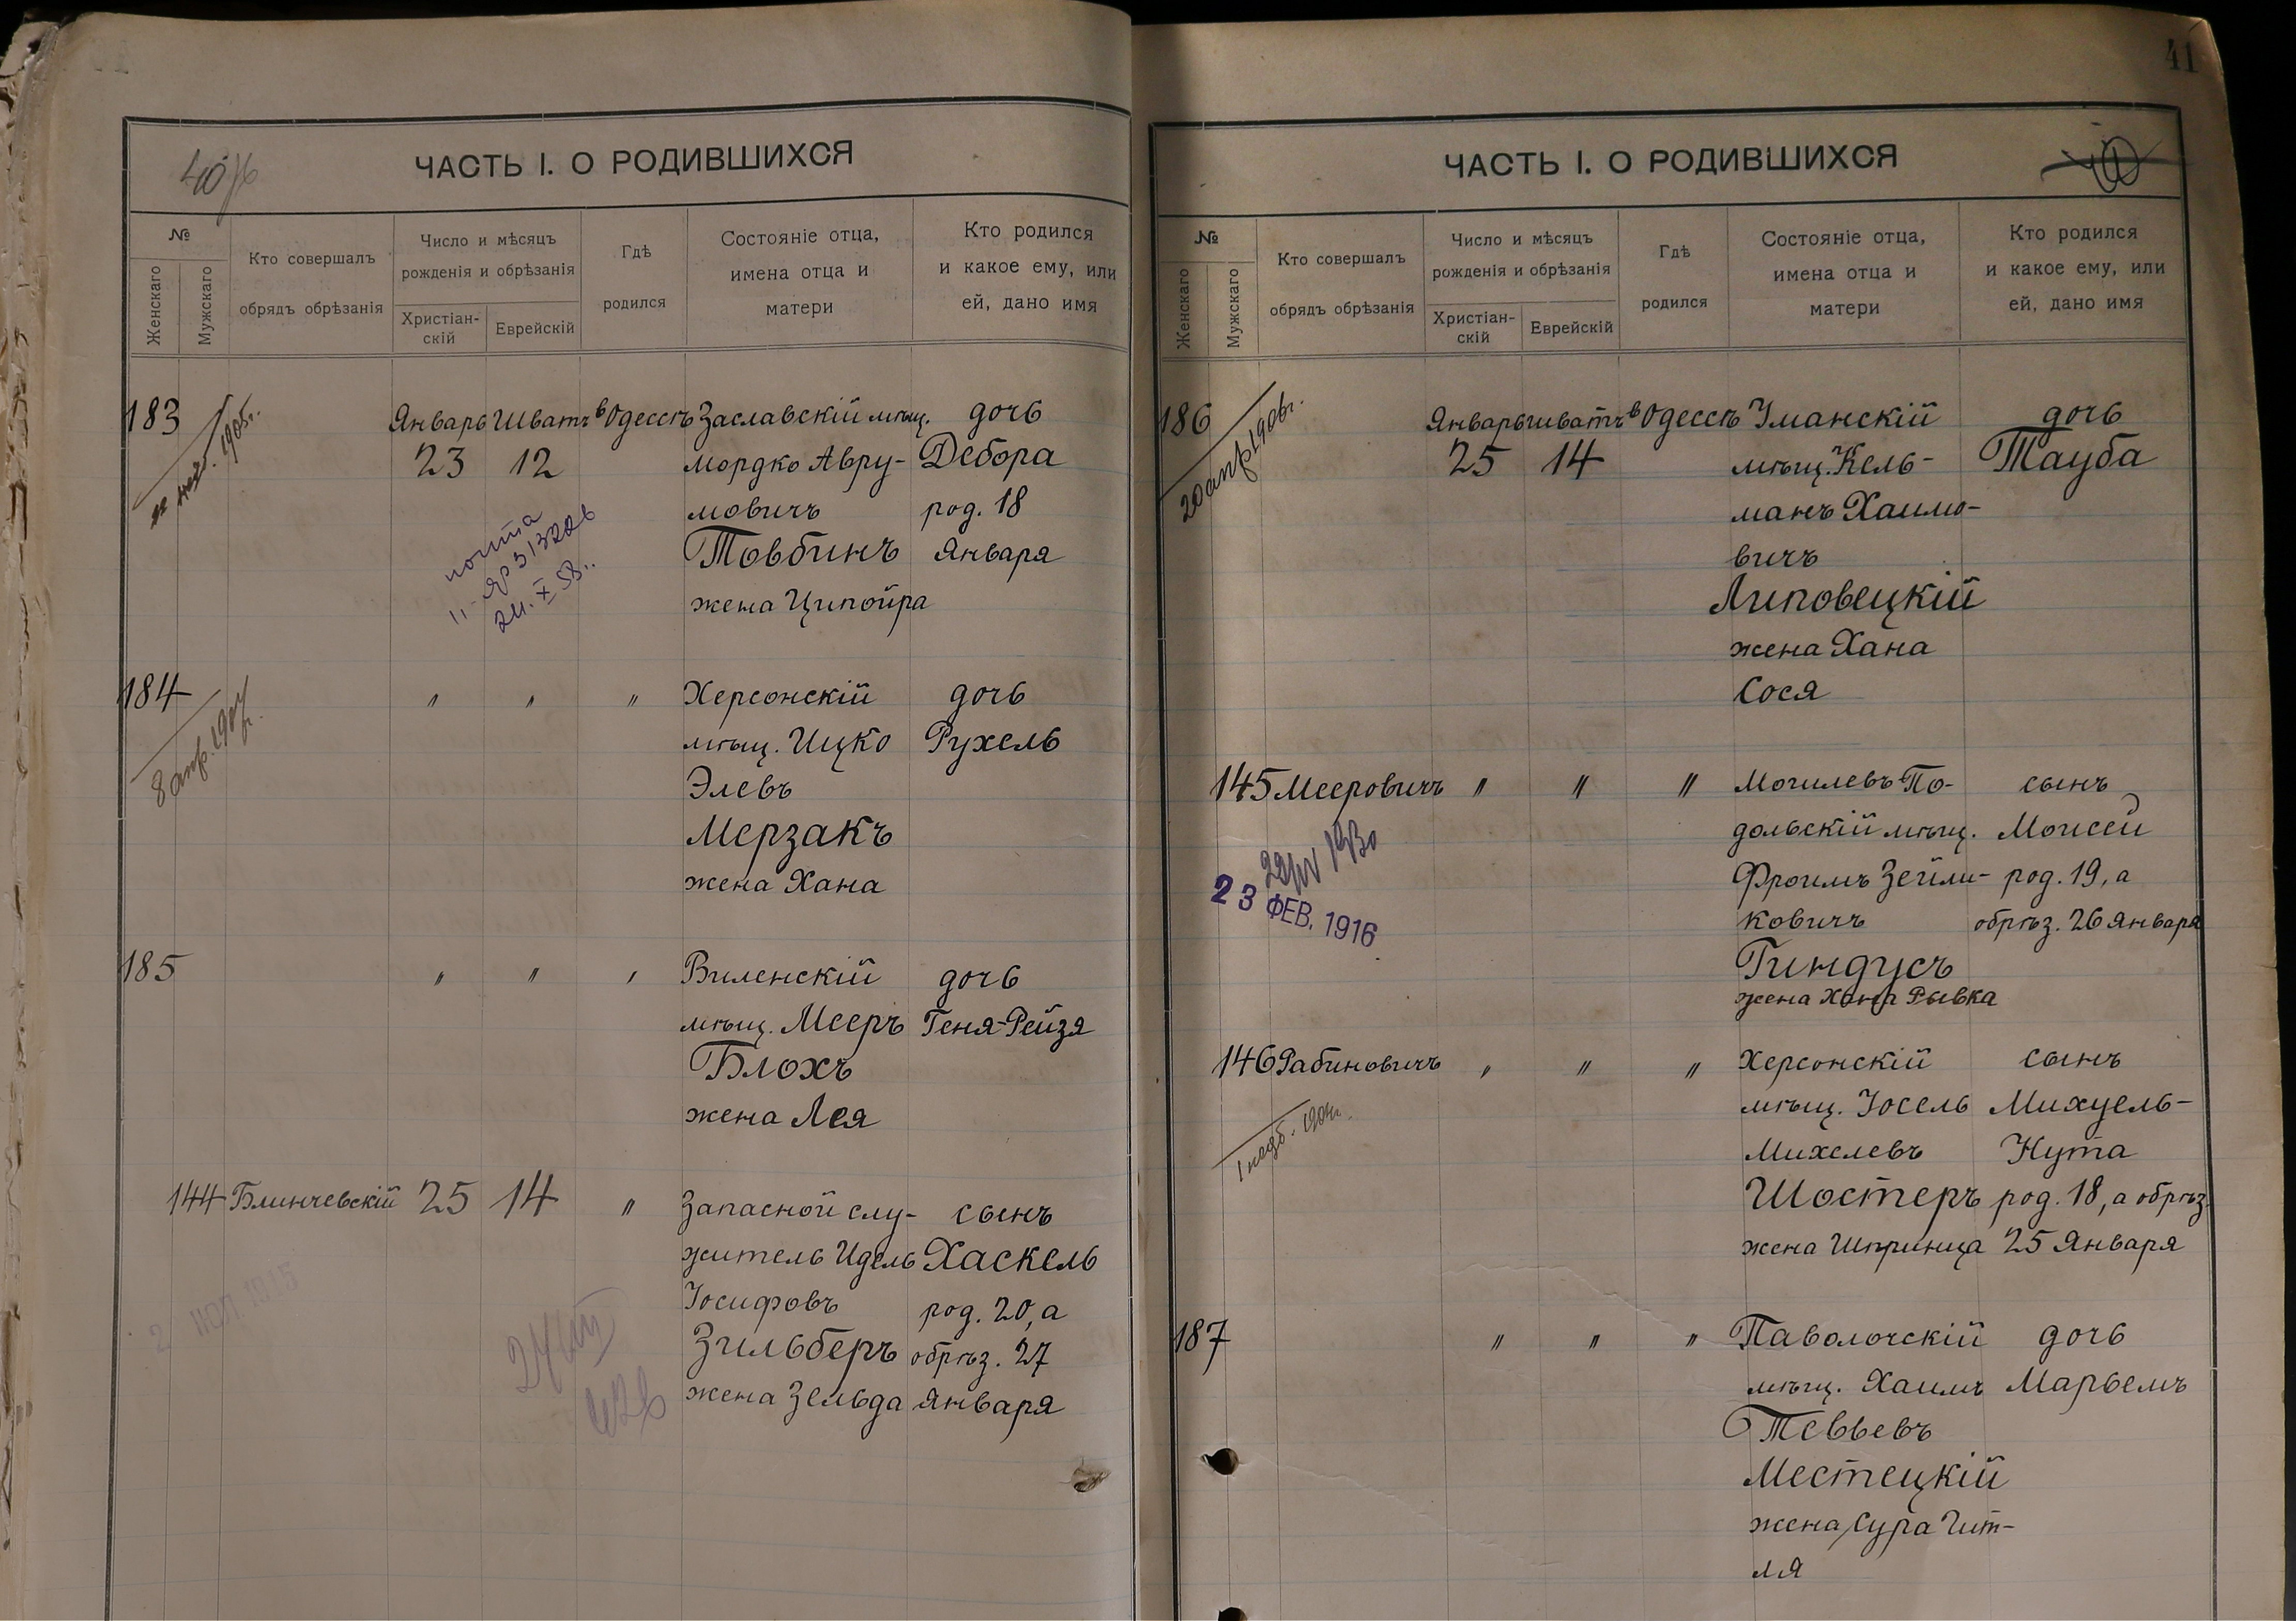 ЧАСТЬ I. О РОДИВШИХСЯ
№
Женскаго
Мужскаго
Кто совершалъ
обрядъ обрѣзанія
Число и мѣсяцъ
рожденія и обрѣзанія
Христіан-
скій
Еврейскій
Гдѣ
родился
Состояніе отца,
имена отца и
матери
Кто родился
и какое ему, или
ей, дано имя
183 Январь Шватъ в Одессѣ Заславскій мѣщ. дочь
23 12 мордко Авру- Дебора
мовичъ род. 18
Товбинъ Января
жена Ципойра
почта
24. X 58 г.
184 " " " Херсонскій дочь
8 апр. 1907г.
мѣщ. Ицко Рухель
Элевъ
Мерзакъ
жена Хана
185 " " " Виленскій дочь
мѣщ. Мееръ Геня-Рейзя
Блохъ
жена Лея
144 Блинчевскій 25 14 " Запасной слу- сынъ
житель Идель Хаскель
Іосифовъ род. 20, а
Зильберъ обрѣз. 27
жена Зельда Января
41
ЧАСТЬ I. О РОДИВШИХСЯ
№
Женскаго
Мужскаго
Кто совершалъ
обрядъ обрѣзанія
Число и мѣсяцъ
рожденія и обрѣзанія
Христіан-
скій
Еврейскій
Гдѣ
родился
Состояніе отца,
имена отца и
матери
Кто родился
и какое ему, или
ей, дано имя
186 Январь шватъ в Одессѣ Уманскій дочь
20 апр 1906г.
25 14 мѣщ. Кель- Тауба
манъ Хаимо-
вичъ
Липовецкій
жена Хана
Сося
145 Мееровичъ " " " Могилевъ По- сынъ
дольскій мѣщ. Моисей
23 ФЕВ. 1916
Фроимъ Зейли- род. 19, а
ковичъ обрѣз. 26 января
Гиндусъ
жена Хана Рывка
146 Рабиновичъ " " " Херсонскій сынъ
мѣщ. Іосель Михуель-
Михелевъ Нута
Шостеръ род. 18, а обрѣз.
жена Шпринца 25 Января
187 " " " Паволочскій дочь
мѣщ. Хаимъ Марьемъ
Тевьевъ
Местецкій
жена Сура Гит-
ля